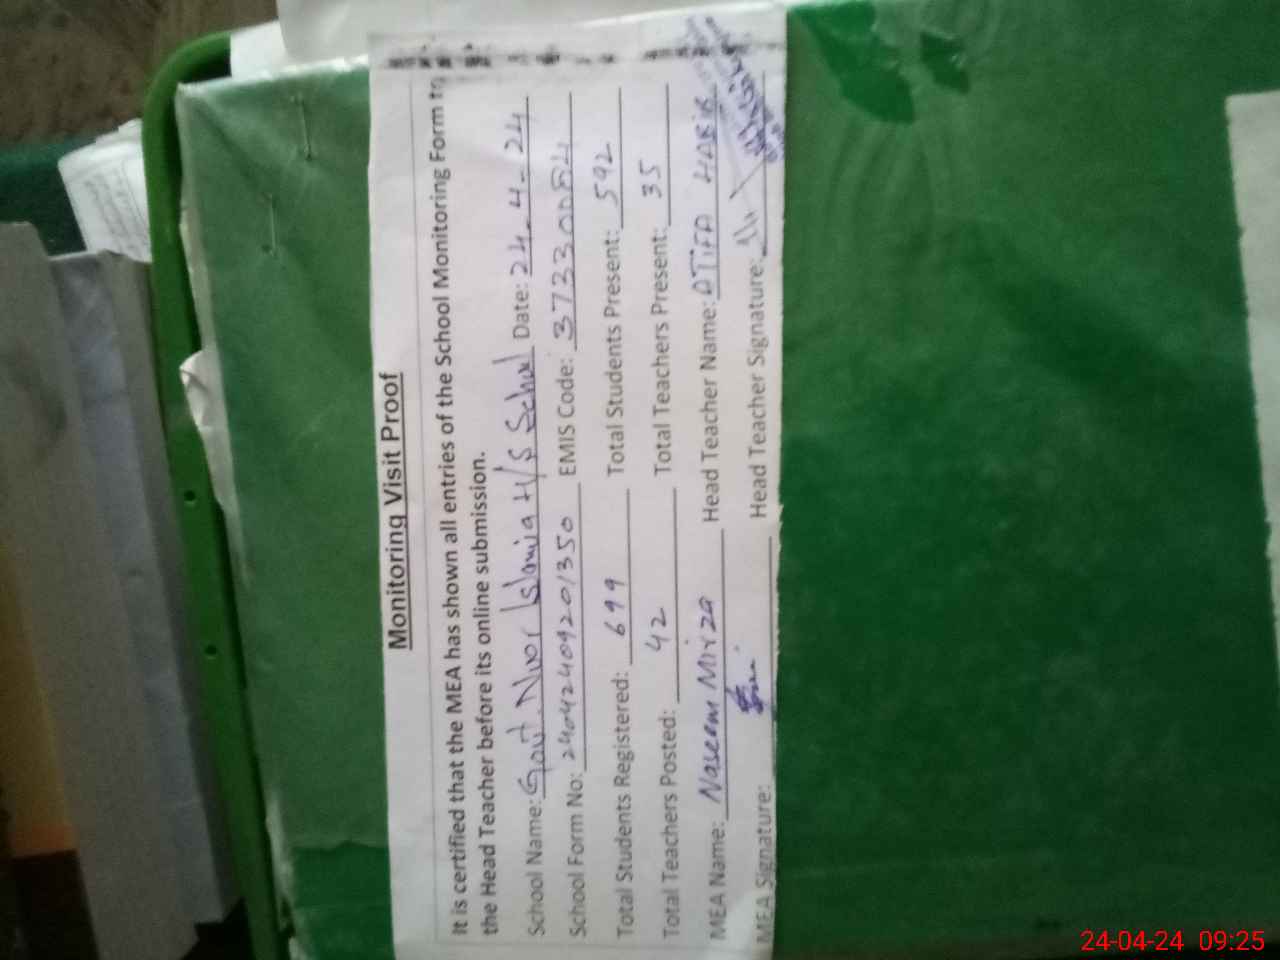 Monitoring Visit Proof
It is certified that the MEA has shown all entries of the School Monitoring Form to
the Head Teacher before its online submission.
School Name: Govt. Noor Islamia H/S School Date: 24-4-24
School Form No: 24042409201350 EMIS Code: 37330084
Total Students Registered: 699 Total Students Present: 592
Total Teachers Posted: 42 Total Teachers Present: 35
MEA Name: Naseem Mirza Head Teacher Name: ATIFA HABIB
MEA Signature: Head Teacher Signature:
24-04-24 09:25